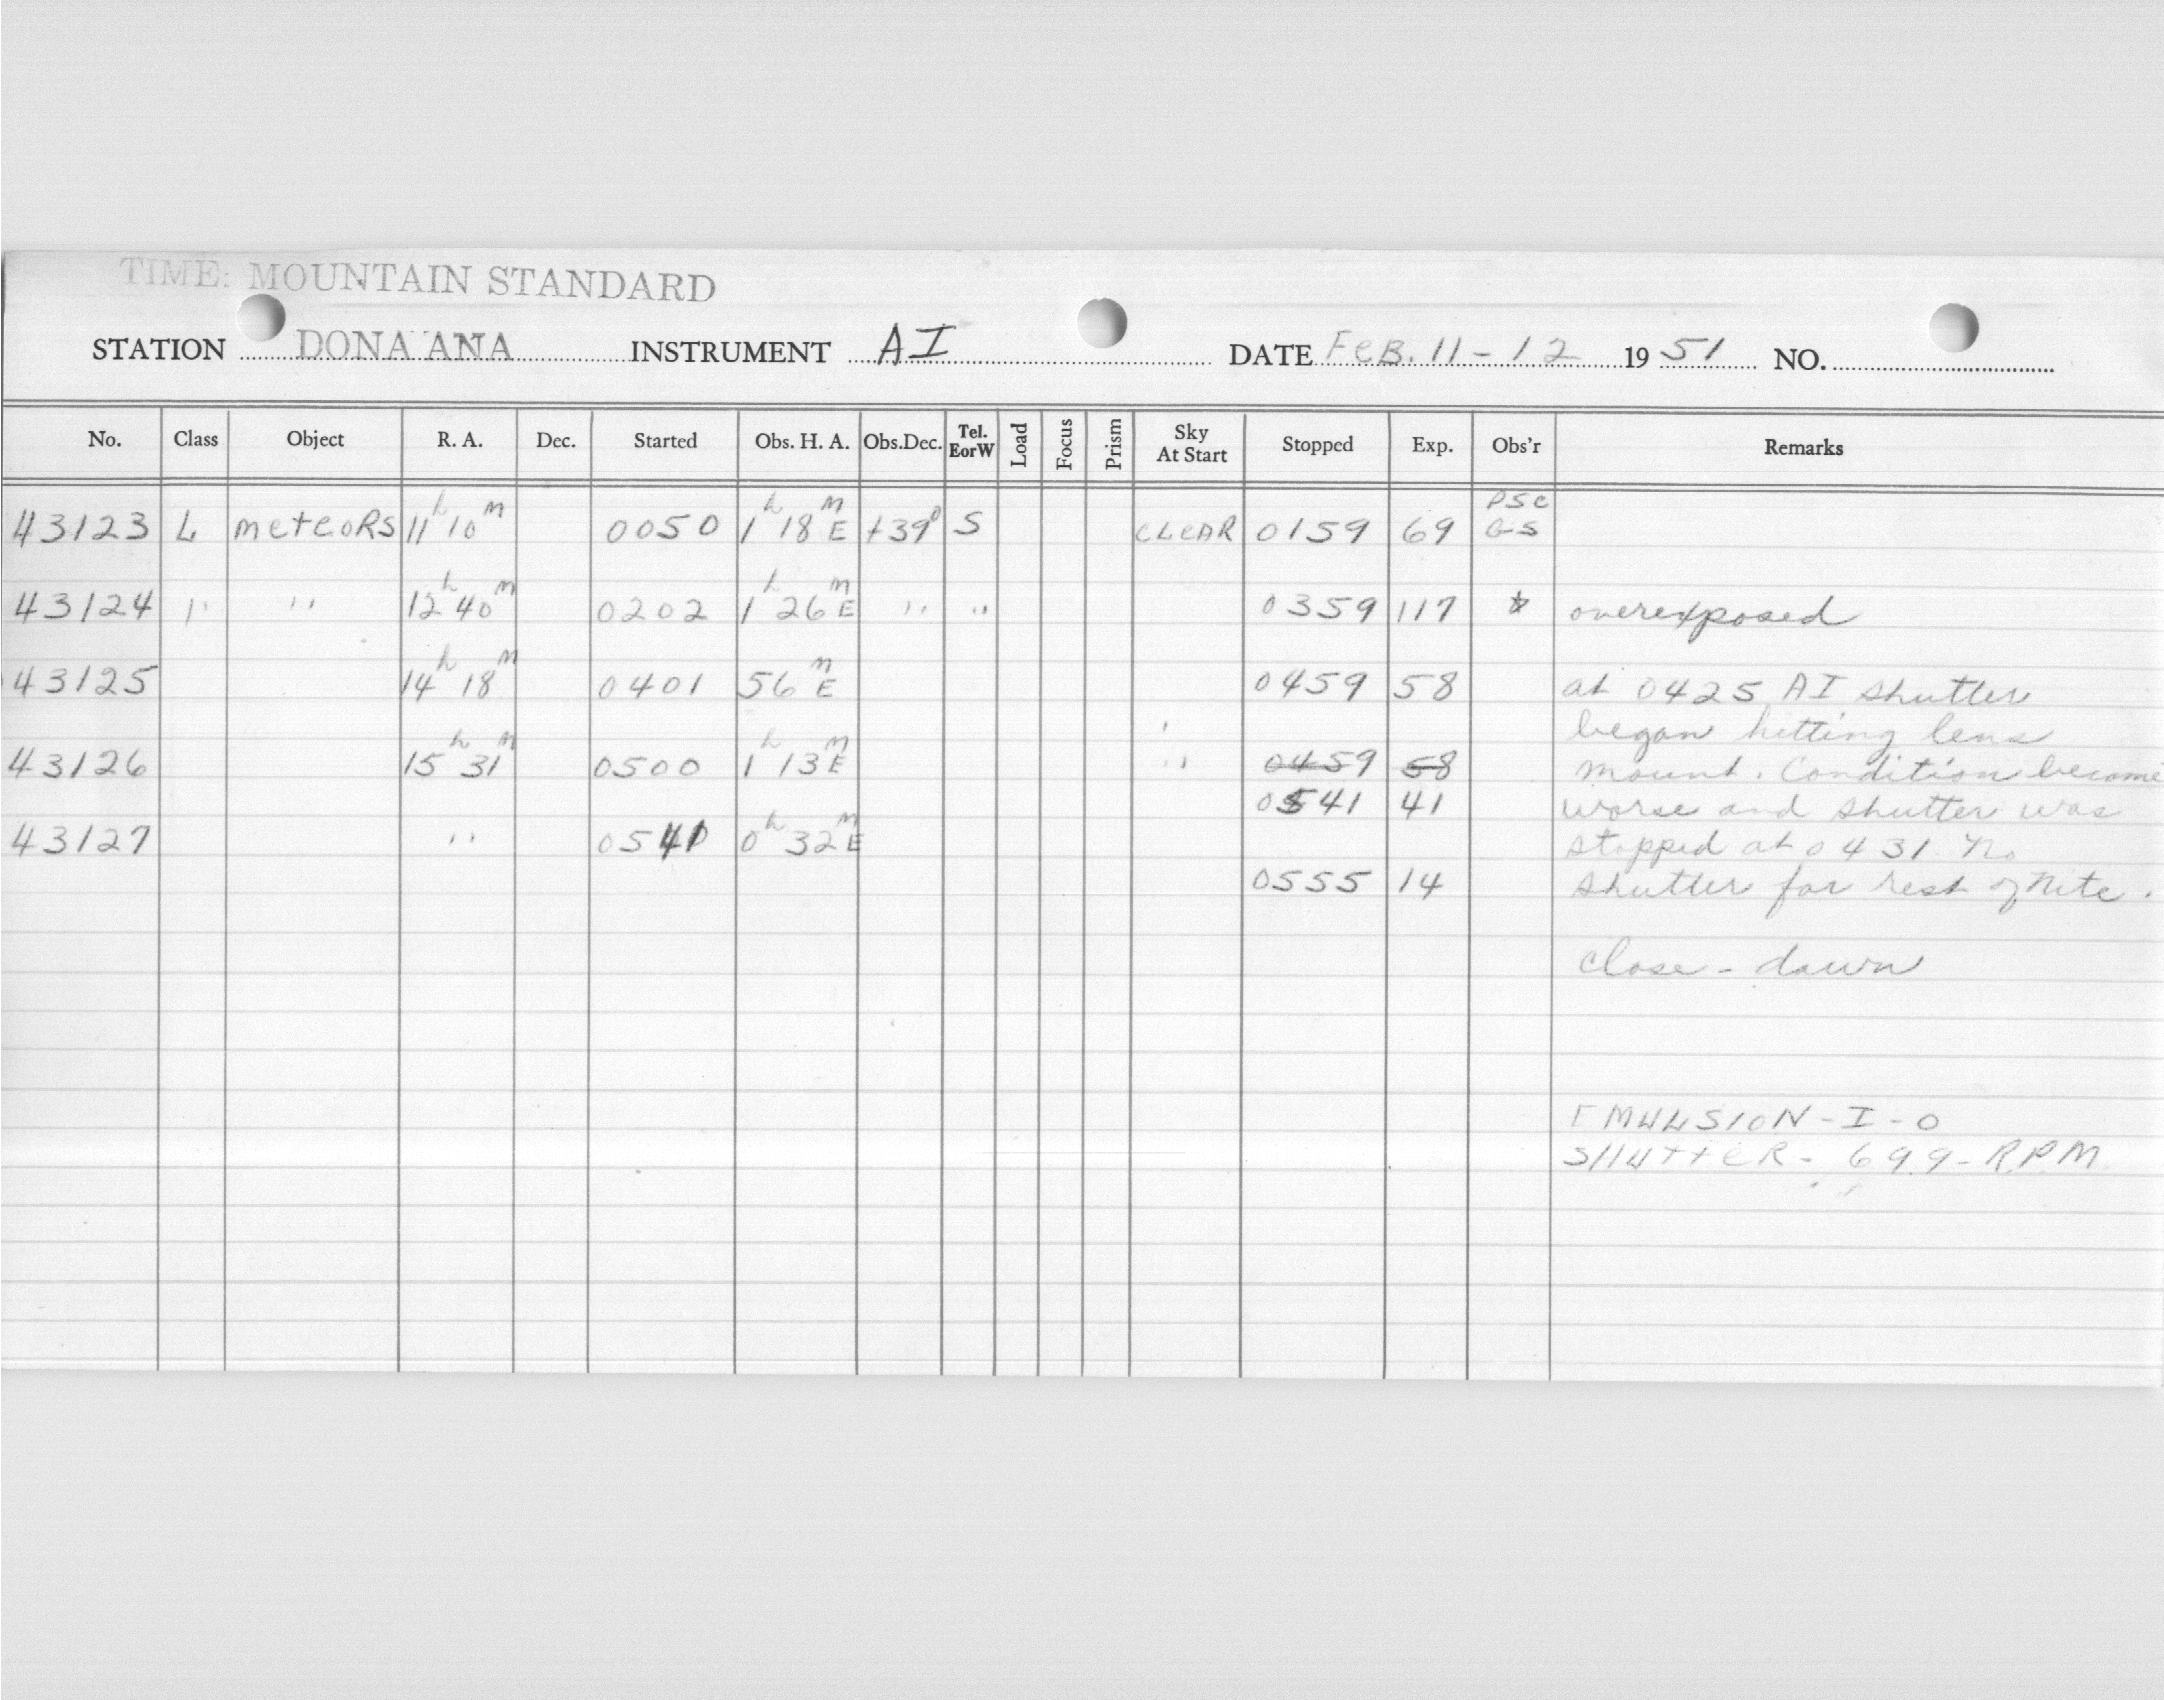 TIME: MOUNTAIN STANDARD
STATION DONA ANA INSTRUMENT AI DATE FEB. 11-12 1951 NO.
No. Class Object R. A. Dec. Started Obs. H. A. Obs.Dec. Tel. EorW Load Focus Prism Sky At Start Stopped Exp. Obs'r Remarks
PSC
43123 L METEORS 11h 10m 0050 1h 18m E +39° S CLEAR 0159 69 GS
43124 " " 12h 40m 0202 1h 26m E " " 0359 117 overexposed
43125 14h 18m 0401 56m E 0459 58 at 0425 AI shutter
began hitting lens
43126 15h 31m 0500 1h 13m E " 0459 58 mount. Condition become
0541 41 worse and shutter was
43127 " 0541 0h 32m E stopped at 0431 No
0555 14 shutter for rest of nite.
close - dawn
EMULSION - I - O
SHUTTER - 699 - RPM